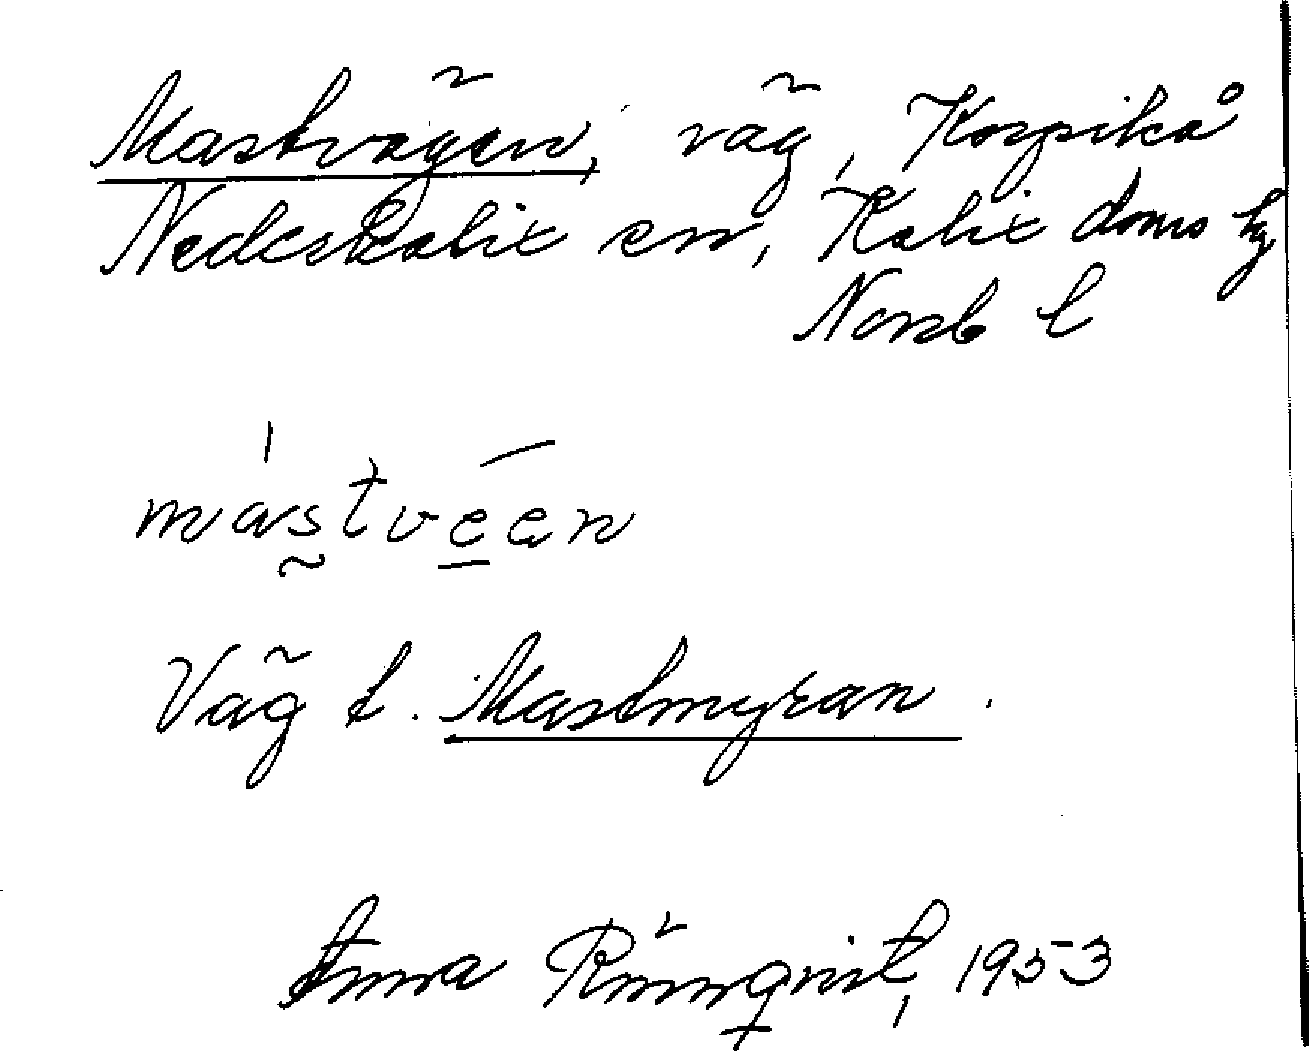 Mastvägen, väg, Korpikå
Nederkalix sn, Kalix doms hg
Norrb l
mástvēen
Väg t. Mastmyran.
Anna Rönnqvist, 1953